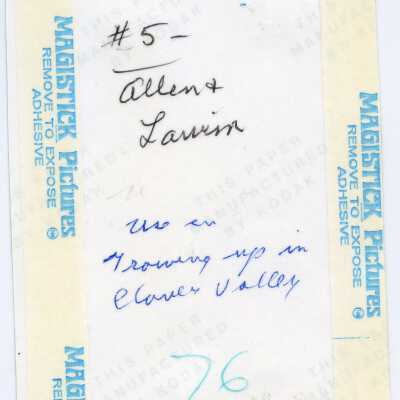 #5-
Allen &
Lawrin
Use in
Growing up in
Clover Valley
76
MAGISTICK Pictures
REMOVE TO EXPOSE
ADHESIVE
MAGISTICK Pictures
REMOVE TO EXPOSE
ADHESIVE
MAGISTICK
THIS PAPER
MANUFACTURED
BY KODAK